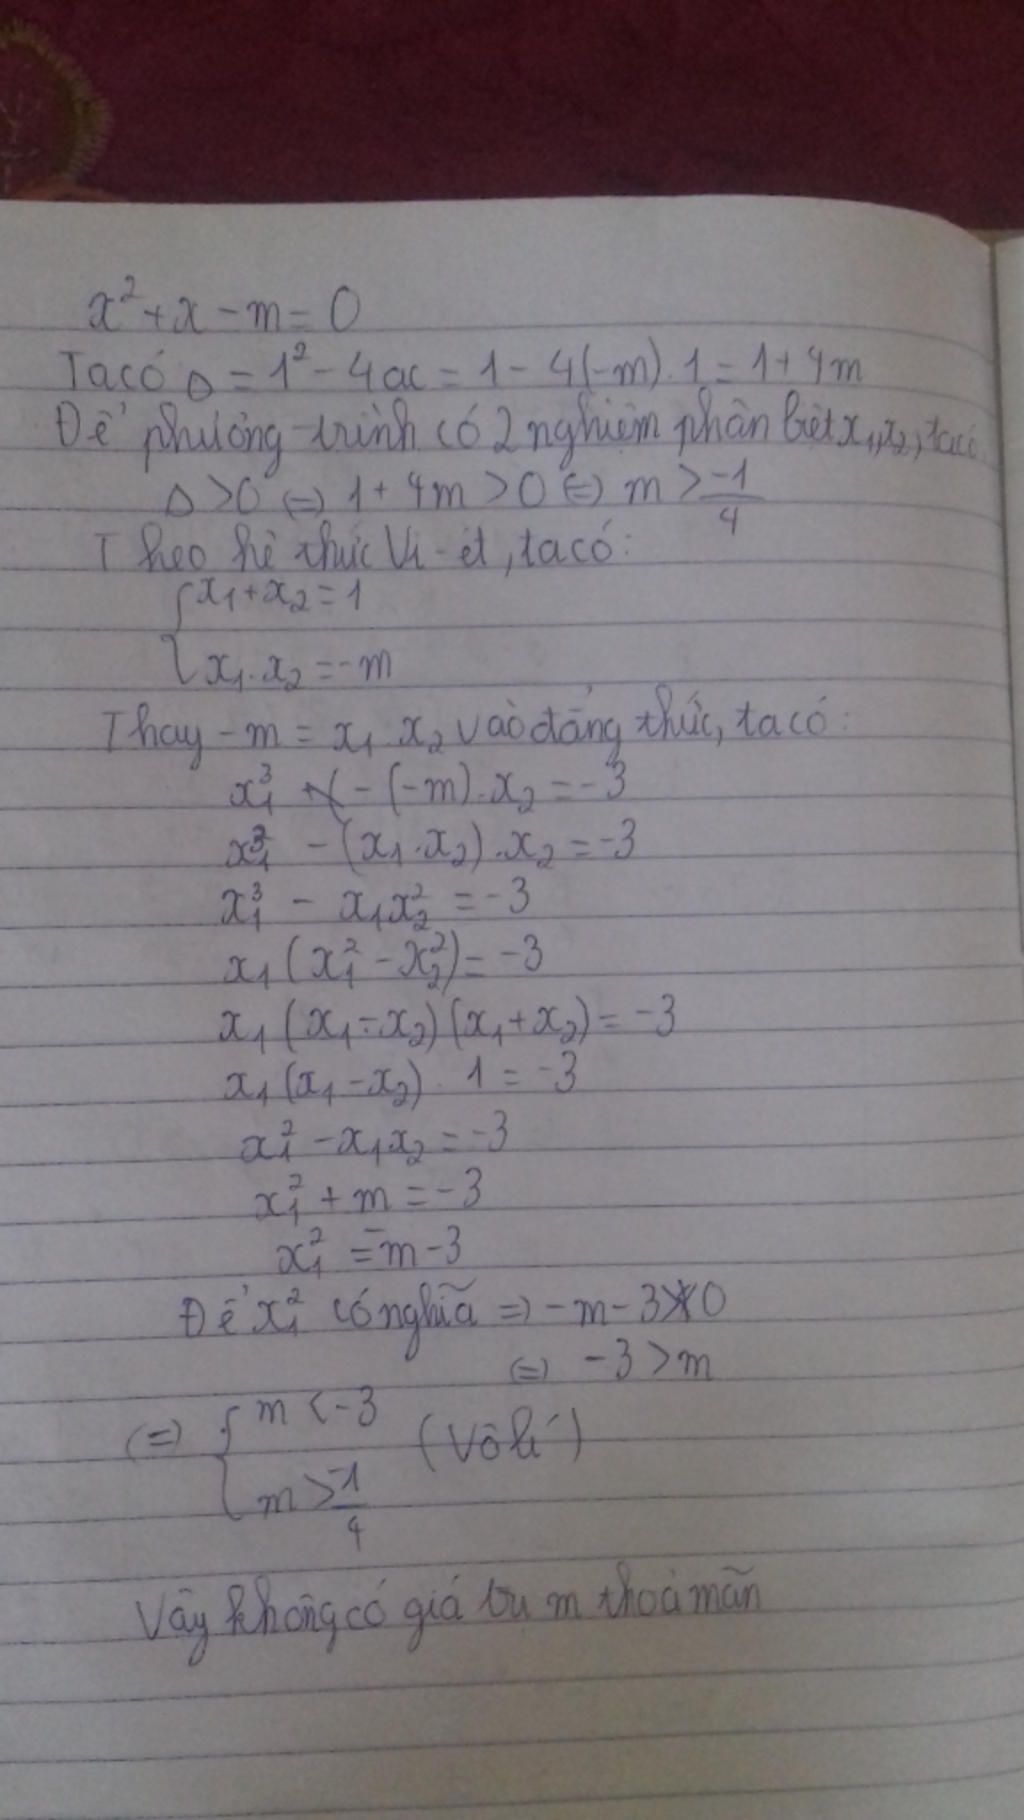 x² + x - m = 0
Ta có Δ = 1² - 4ac = 1 - 4(-m).1 = 1 + 4m
Để phương trình có 2 nghiệm phân biệt x₁, x₂, ta có
Δ > 0 (=) 1 + 4m > 0 (=) m > -1/4
Theo hệ thức Vi-ét, ta có:
{ x₁ + x₂ = 1
{ x₁ . x₂ = -m
Thay -m = x₁ . x₂ vào đẳng thức, ta có:
x₁³ - (-m).x₂ = -3
x₁³ - (x₁.x₂).x₂ = -3
x₁³ - x₁x₂² = -3
x₁(x₁² - x₂²) = -3
x₁(x₁ - x₂)(x₁ + x₂) = -3
x₁(x₁ - x₂) . 1 = -3
x₁² - x₁x₂ = -3
x₁² + m = -3
x₁² = -m - 3
Để x₁² có nghĩa => -m - 3 > 0
(=) -3 > m
(=) { m < -3
{ m > -1/4 (Vô lí)
Vậy không có giá trị m thoả mãn